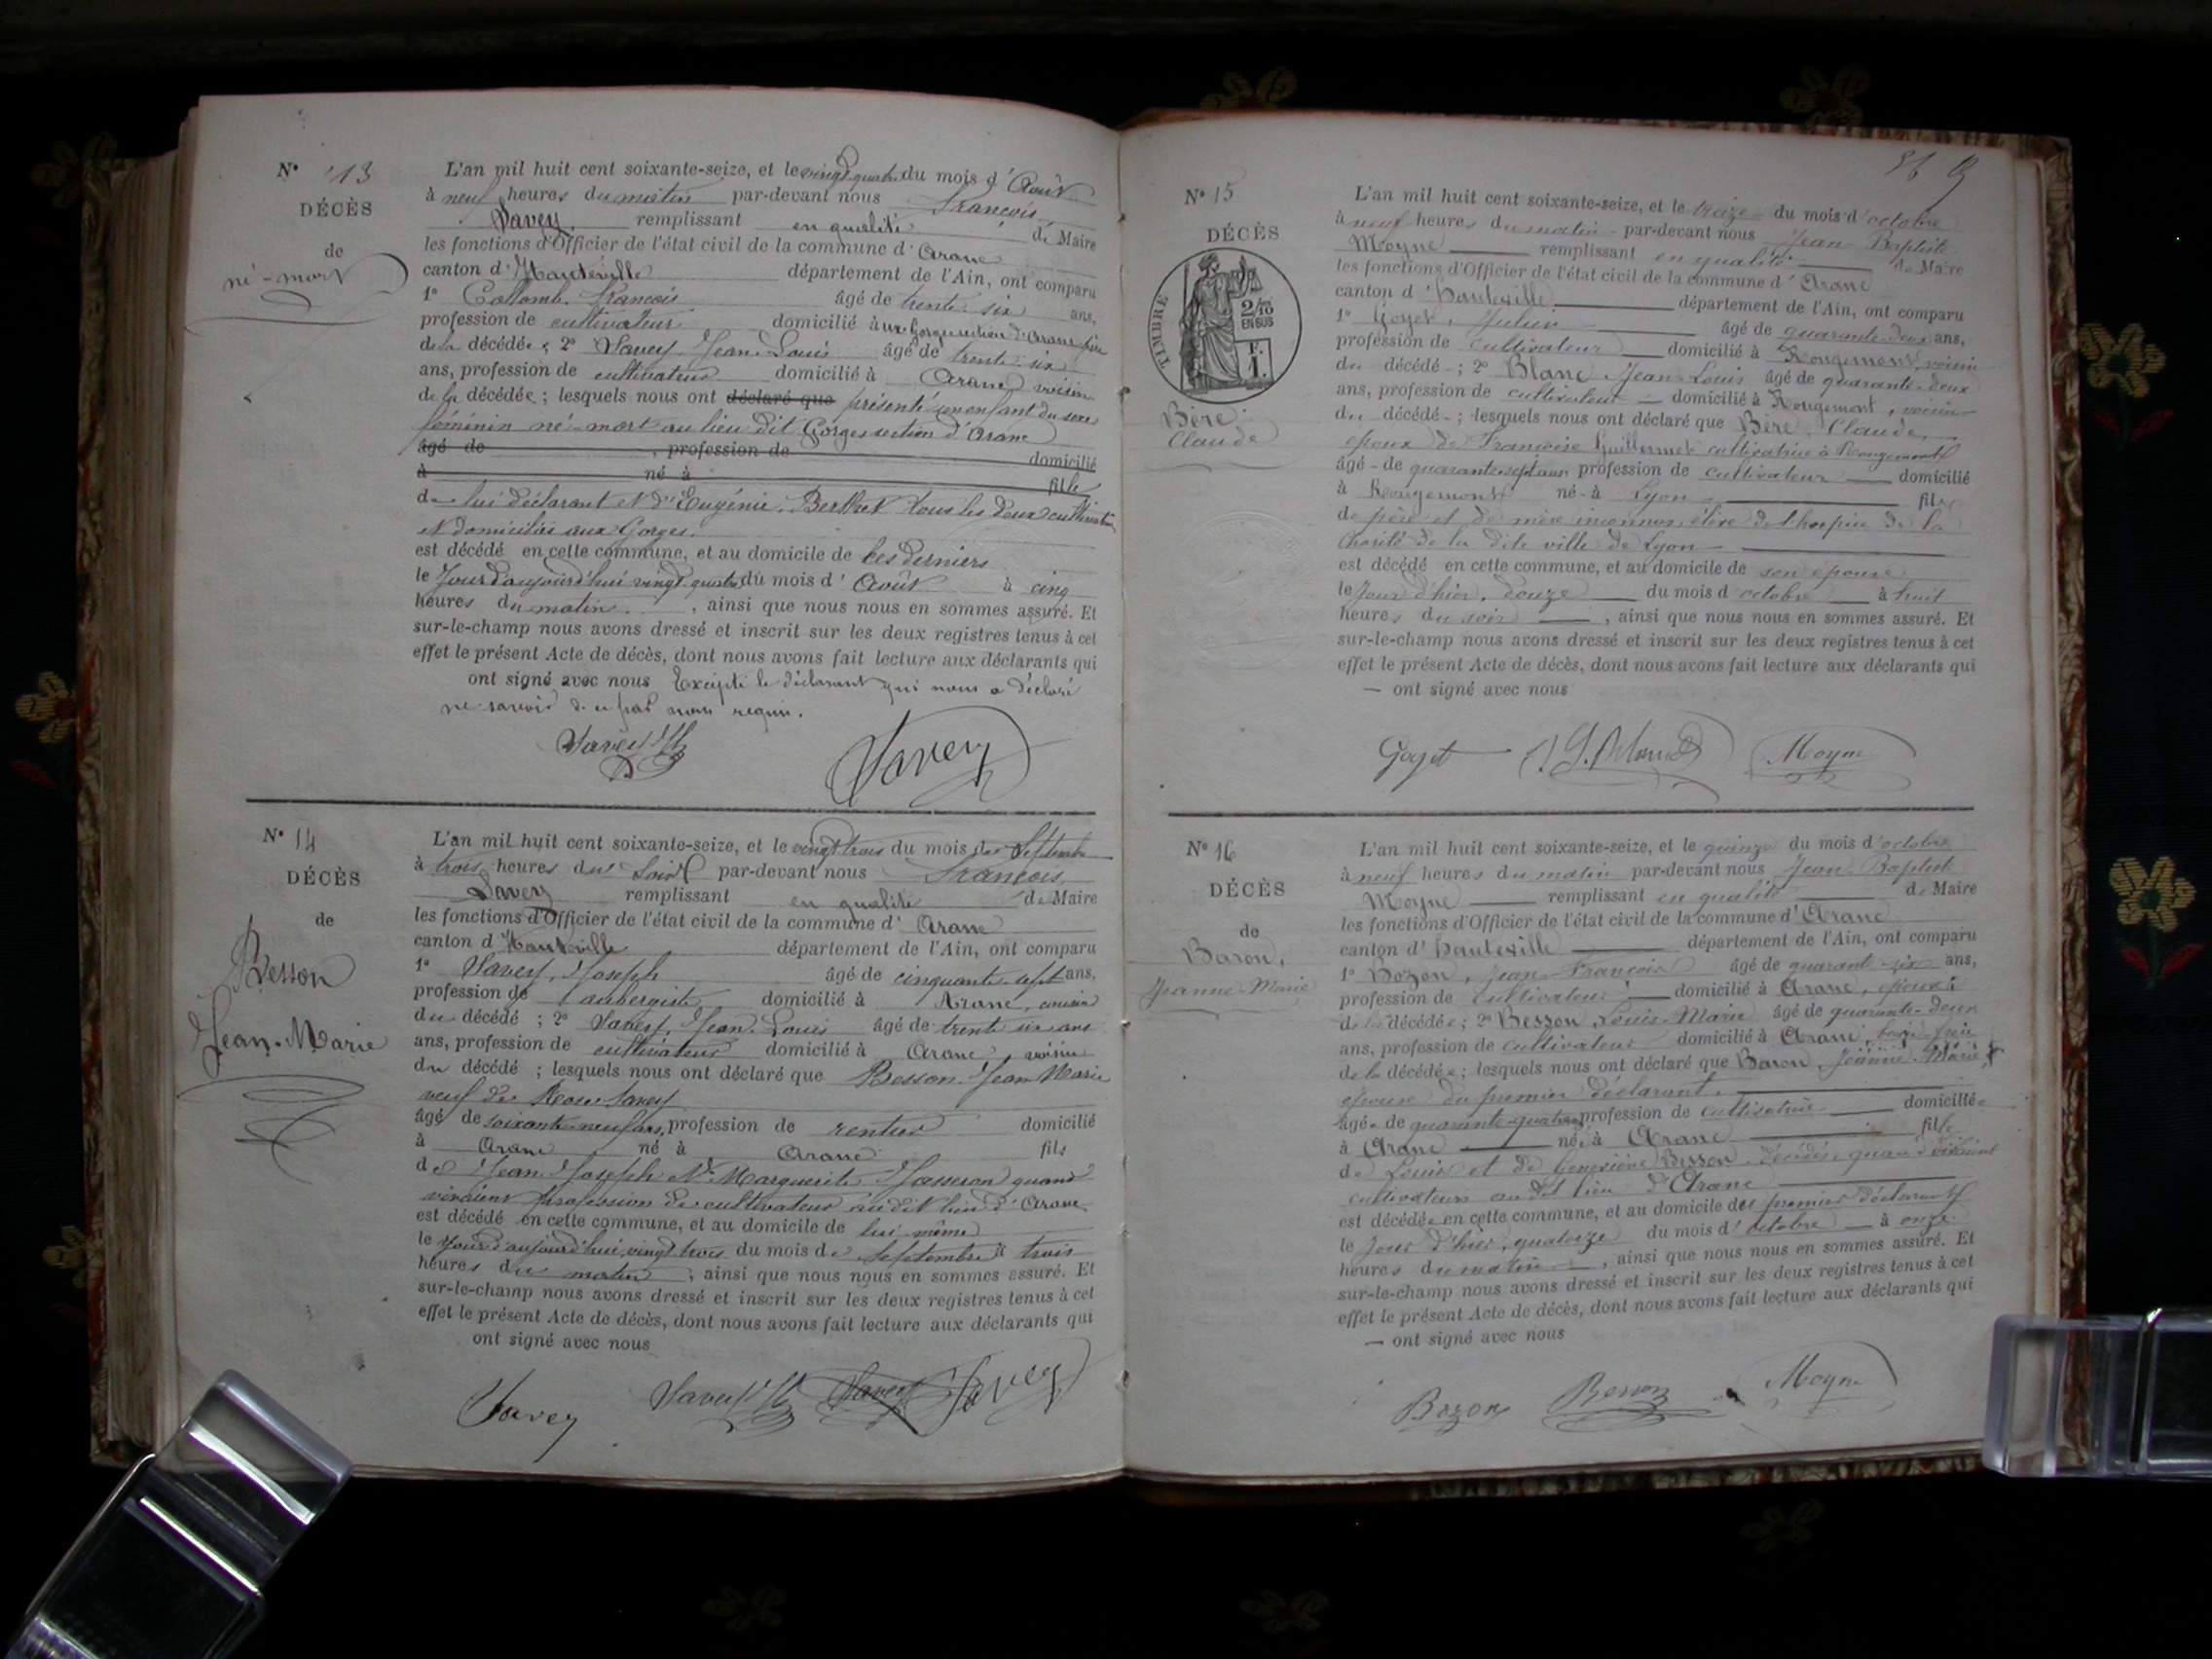 N° 13
DÉCÈS
de
né-mort
L'an mil huit cent soixante-seize, et le vingt quatre du mois d'Août
à neuf heures du matin par-devant nous François
Savey remplissant en qualité de Maire
les fonctions d'Officier de l'état civil de la commune d'Aranc
canton d'Hauteville département de l'Ain, ont comparu
1° Collomb, François âgé de trente six ans,
profession de cultivateur domicilié aux Gorges section d'Aranc père
de la décédée ; 2° Savey, Jean Louis âgé de trente-six
ans, profession de cultivateur domicilié à Aranc voisin
de la décédée ; lesquels nous ont déclaré que présenté un enfant du sexe
féminin né-mort au lieu dit Gorges section d'Aranc
âgé de , profession de domicilié
à né à fille
de lui déclarant et d'Eugénie, Berthet tous les deux cultivateurs
et domiciliés aux Gorges.
est décédé en cette commune, et au domicile de ces derniers
le Jour d'aujourd'hui vingt quatre du mois d'Août à cinq
heures du matin , ainsi que nous nous en sommes assuré. Et
sur-le-champ nous avons dressé et inscrit sur les deux registres tenus à cet
effet le présent Acte de décès, dont nous avons fait lecture aux déclarants qui
ont signé avec nous Excepté le déclarant qui nous a déclaré
ne savoir de ce par nous requis.
Savey
Savey
N° 14
DÉCÈS
de
Besson
Jean-Marie
L'an mil huit cent soixante-seize, et le vingt trois du mois de Septembre
à trois heures du Soir par-devant nous François
Savey remplissant en qualité de Maire
les fonctions d'Officier de l'état civil de la commune d'Aranc
canton d'Hauteville département de l'Ain, ont comparu
1° Savey, Joseph âgé de cinquante sept ans,
profession de aubergiste domicilié à Aranc, cousin
du décédé ; 2° Savey, Jean Louis âgé de trente six ans
ans, profession de cultivateur domicilié à Aranc, voisin
du décédé ; lesquels nous ont déclaré que Besson Jean Marie
veuf de Rose Savey
âgé de soixante-neuf ans, profession de rentier domicilié
à Aranc né à Aranc fils
de Jean Joseph et Marguerite Masseron quand
vivaient profession de cultivateur au dit lieu d'Aranc
est décédé en cette commune, et au domicile de lui même
le Jour d'aujourd'hui vingt trois du mois de Septembre à trois
heures du matin , ainsi que nous nous en sommes assuré. Et
sur-le-champ nous avons dressé et inscrit sur les deux registres tenus à cet
effet le présent Acte de décès, dont nous avons fait lecture aux déclarants qui
ont signé avec nous
Savey Savey Savey Savey
N° 15
DÉCÈS
TIMBRE
2/10
EN SUS
F.
1.
Bère
Claude
L'an mil huit cent soixante-seize, et le treize du mois d'octobre
à neuf heures du matin par-devant nous Jean Baptiste
Moyne remplissant en qualité de Maire
les fonctions d'Officier de l'état civil de la commune d'Aranc
canton d'hauteville département de l'Ain, ont comparu
1° Goyet, Julien âgé de quarante-deux ans,
profession de cultivateur domicilié à Rougemont, voisin
du décédé ; 2° Blanc Jean Louis âgé de quarante-deux
ans, profession de cultivateur domicilié à Rougemont, voisin
du décédé ; lesquels nous ont déclaré que Bère, Claude,
époux de Françoise Guillermet cultivatrice à Rougemont
âgé de quarante-sept ans profession de cultivateur domicilié
à Rougemont né à Lyon fils
de père et de mère inconnus, élève de l'hospice de la
Charité de la dite ville de Lyon
est décédé en cette commune, et au domicile de son épouse
le Jour d'hier, douze du mois d'octobre à huit
heures du soir , ainsi que nous nous en sommes assuré. Et
sur-le-champ nous avons dressé et inscrit sur les deux registres tenus à cet
effet le présent Acte de décès, dont nous avons fait lecture aux déclarants qui
— ont signé avec nous
Goyet J. L. Blanc Moyne
N° 16
DÉCÈS
de
Baron,
Jeanne-Marie
L'an mil huit cent soixante-seize, et le quinze du mois d'octobre
à neuf heures du matin par-devant nous Jean Baptiste
Moyne remplissant en qualité de Maire
les fonctions d'Officier de l'état civil de la commune d'Aranc
canton d'hauteville département de l'Ain, ont comparu
1° Bozon, Jean François âgé de quarante-six ans,
profession de cultivateur domicilié à Aranc, époux
de la décédée ; 2° Besson, Louis-Marie âgé de quarante-deux
ans, profession de cultivateur domicilié à Aranc, beau-frère
de la décédée ; lesquels nous ont déclaré que Baron, Jeanne-Marie
épouse du premier déclarant,
âgée de quarante-quatre profession de cultivatrice domiciliée
à Aranc née à Aranc fille
de Louis et de Geneviève Besson décédés quand vivaient
cultivateurs au dit lieu d'Aranc
est décédée en cette commune, et au domicile de premier déclarant
le Jour d'hier, quatorze du mois d'octobre à onze
heures du matin , ainsi que nous nous en sommes assuré. Et
sur-le-champ nous avons dressé et inscrit sur les deux registres tenus à cet
effet le présent Acte de décès, dont nous avons fait lecture aux déclarants qui
— ont signé avec nous
Bozon Besson Moyne